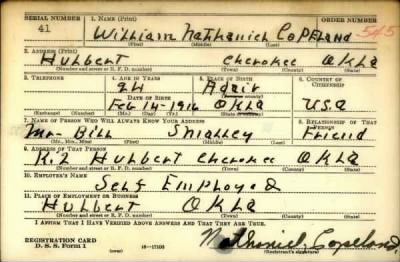 SERIAL NUMBER 1. NAME (Print) ORDER NUMBER
41 William Nathaniel Copeland 545
(First) (Middle) (Last)
2. ADDRESS (Print)
Hulbert Cherokee Okla
(Number and street or R. F. D. number) (Town) (County) (State)
3. TELEPHONE 4. AGE IN YEARS 5. PLACE OF BIRTH 6. COUNTRY OF CITIZENSHIP
24 Adair
DATE OF BIRTH (Town or county)
Feb 14-1916 Okla USA
(Exchange) (Number) (Mo.) (Day) (Yr.) (State or country)
7. NAME OF PERSON WHO WILL ALWAYS KNOW YOUR ADDRESS 8. RELATIONSHIP OF THAT PERSON
Mr. Bill Friend
(Mr., Mrs., Miss) (First) (Middle) (Last)
9. ADDRESS OF THAT PERSON
Hulbert Cherokee Okla
(Number and street or R. F. D. number) (Town) (County) (State)
10. EMPLOYER'S NAME
Self Employed
11. PLACE OF EMPLOYMENT OR BUSINESS
Hulbert Okla
(Number and street or R. F. D. number) (Town) (County) (State)
I AFFIRM THAT I HAVE VERIFIED ABOVE ANSWERS AND THAT THEY ARE TRUE.
REGISTRATION CARD
D. S. S. Form 1 16-17105 Nathaniel Copeland
(Registrant's signature)